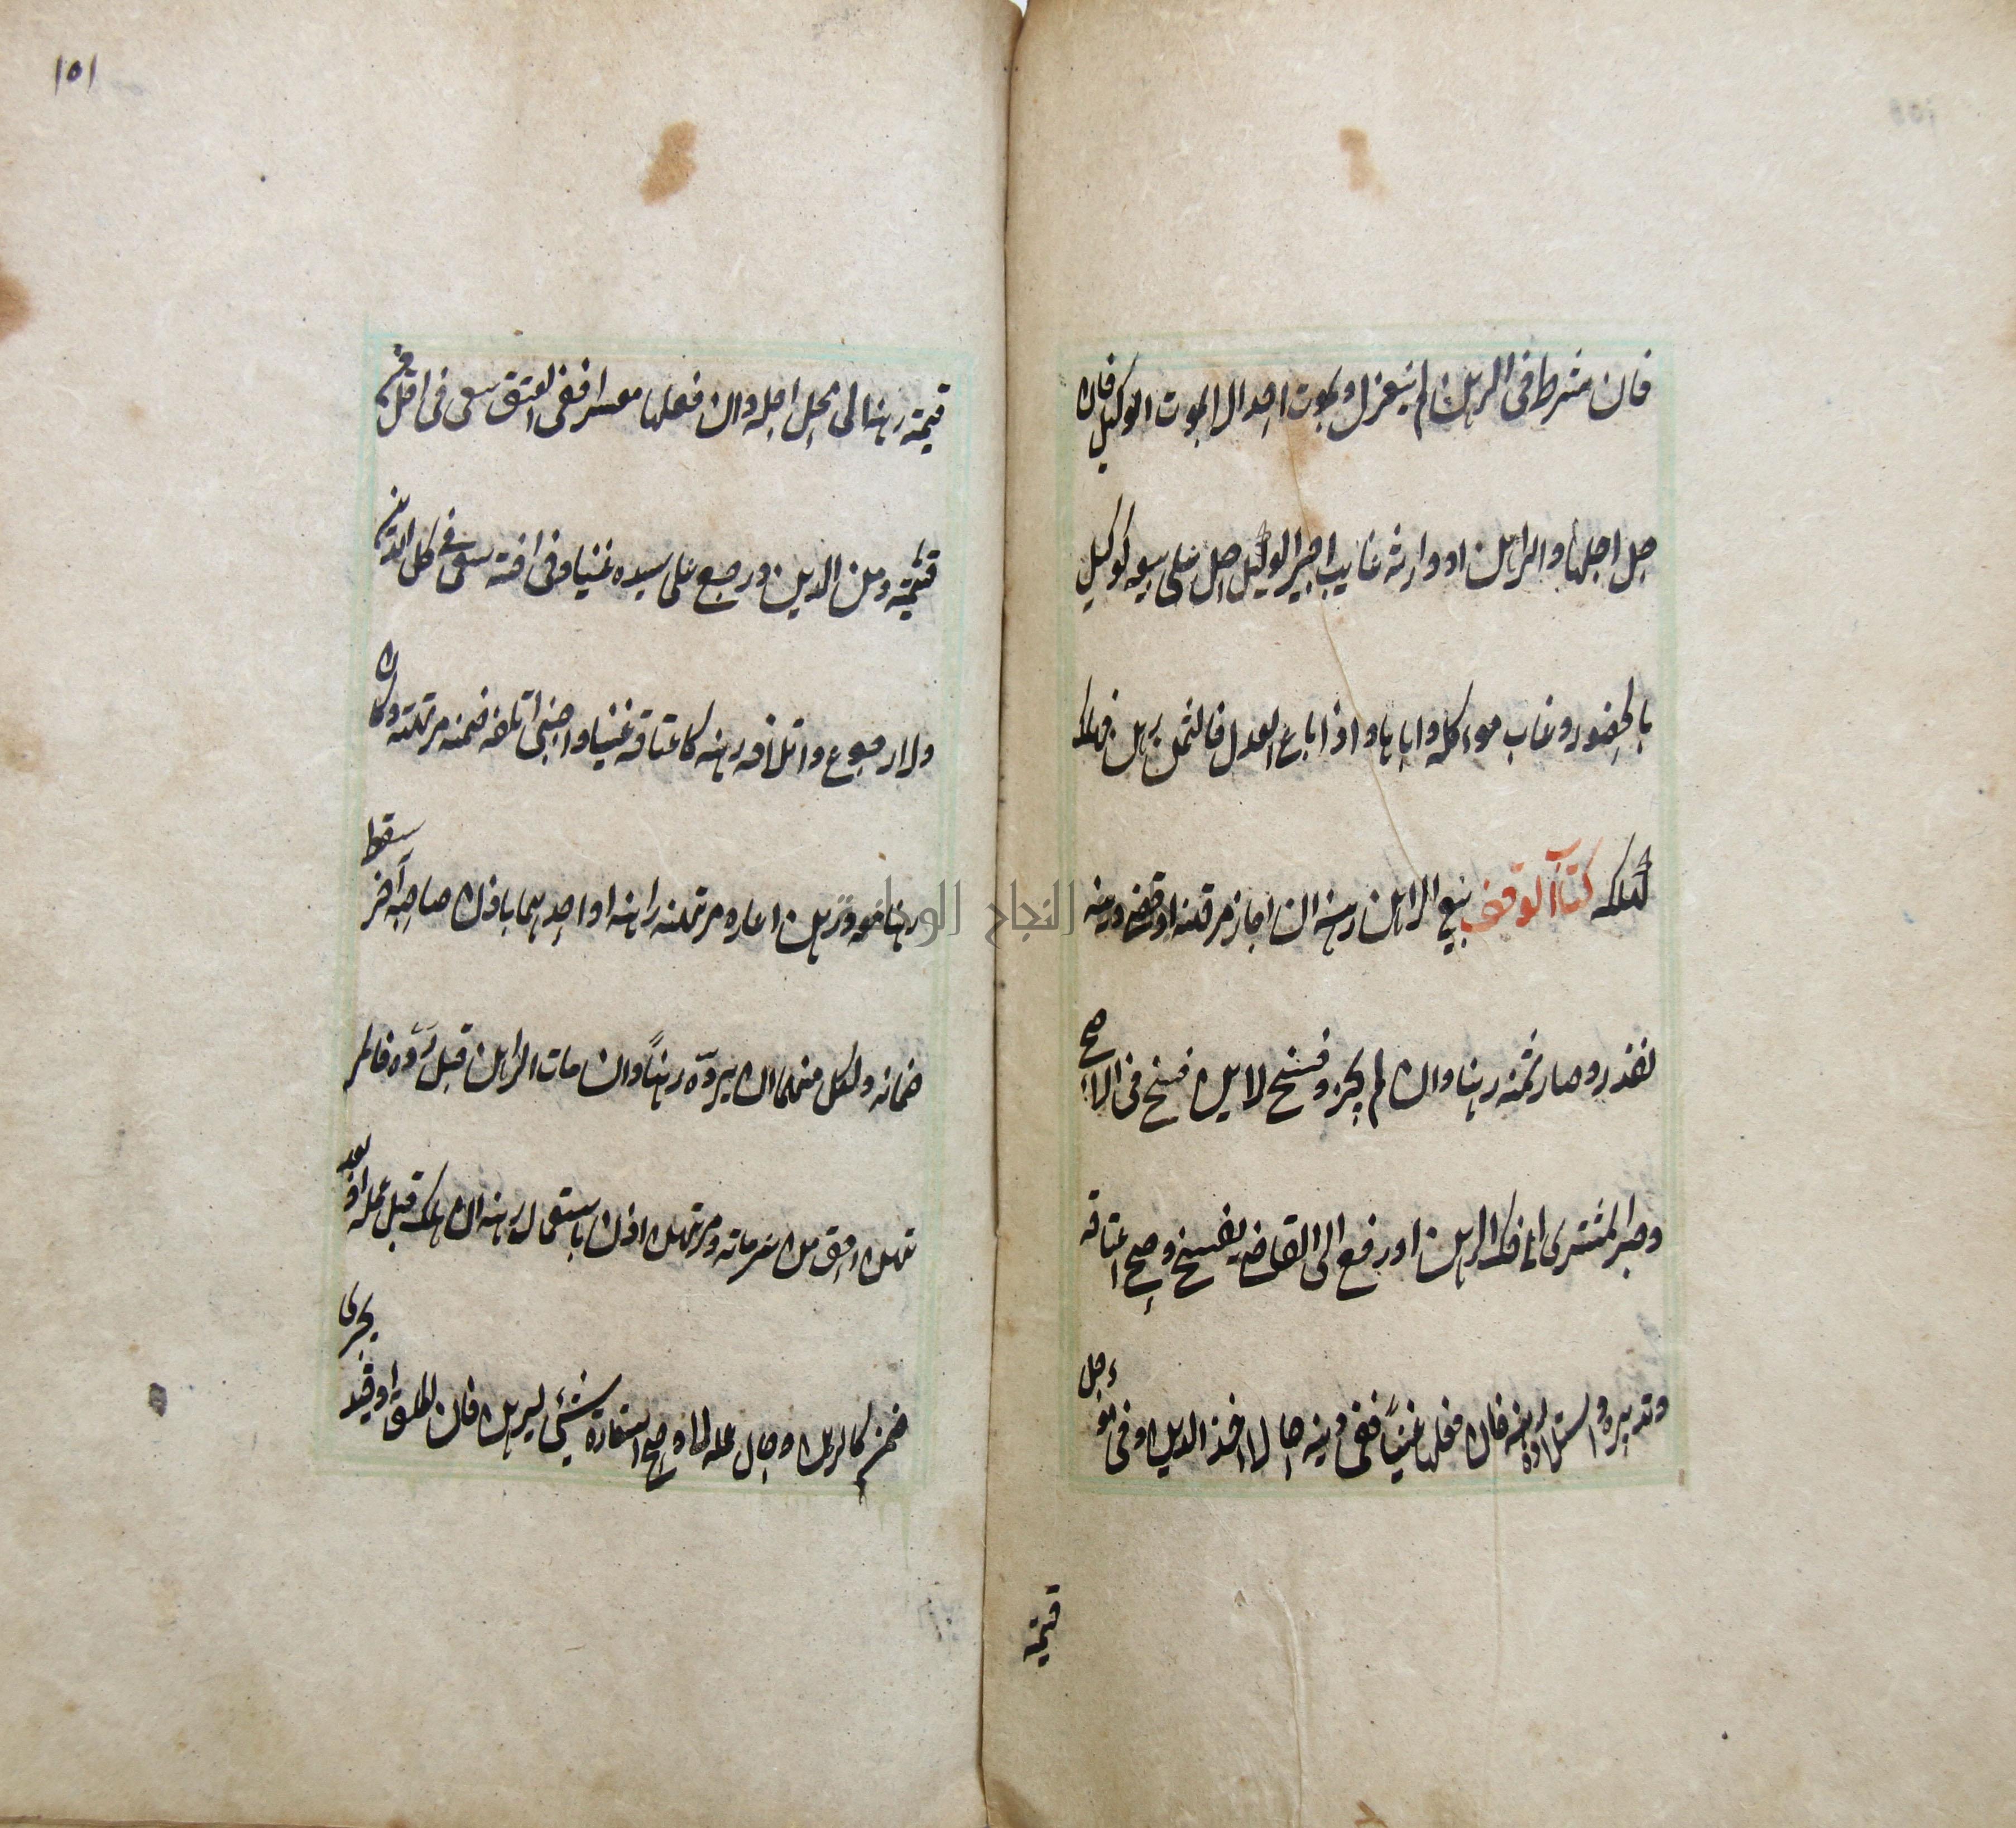 فان شرط فى الرهن لم ينعزل وبموت احد الا الموت الوكيل فان
حل اجلها والراهن او وارثه غايب اجبر الوكيل اجل على بيعه كوكيل
بالخضور وغاب موءكله واباها واذا باع العدل فالثمن رهن فهلكه
كهلكه كتاب التوقف بيع الراهن رهنه ان اجاز مرتهنه او قضى دينه
نفذ وصار ثمنه رهنا وان لم يجز وفسخ لا ينفسخ فى الاصح
وصبر المشترى الى فك الرهن او رفع الى القاضى ليفسخ وصح اعتاقه
وتدبيره واستيلاده رهنه فان فعلها غنيًا ففى دينه حالا اخذ الدين وفى موءجل
قيمته
١٥١
قيمته رهنا الى محل اجله وان فعلها معسرا ففى العتق سعى فى اقل من
قيمته ومن الدين ورجع على سيده غنيا وفى اخته سعى فى كل الدين
ولا رجوع واتلافه رهنه كاعتاقه غنيا واجنبى اتلفه ضمنه مرتهنه وكان
رهنا معه ورهن اعاره مرتهنه راهنه او احدهما باذن صاحبه آخر سقط
ضمانه ولكل منهما ان يرده رهنًا وان مات الراهن قبل رده فالمر
تهن احق من غرمائه ومرتهن اذن باستعمال رهنه ان هلك قبل عمله او بعد
ضمن كالرهن وحال عمله لا وصح استعارة شيئ ليرهن فان اطلق او قيد يجرى
النجاح الو